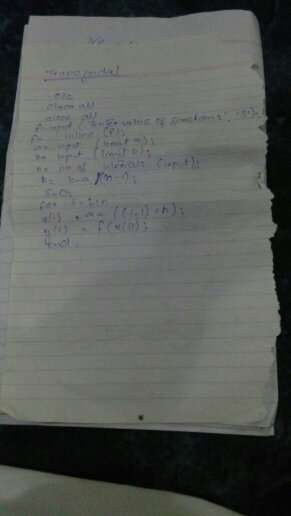 Trapezoidal
clc
clear all
close all
f = input ('Enter value of function:', 's');
f = inline (f);
a = input (limit a);
b = input (limit b);
n = no of intervals (input);
h = b-a /(n-1);
S=0;
for i=1:n
x(i) = a+ ((i-1)*h);
y(i) = f(x(i));
end.